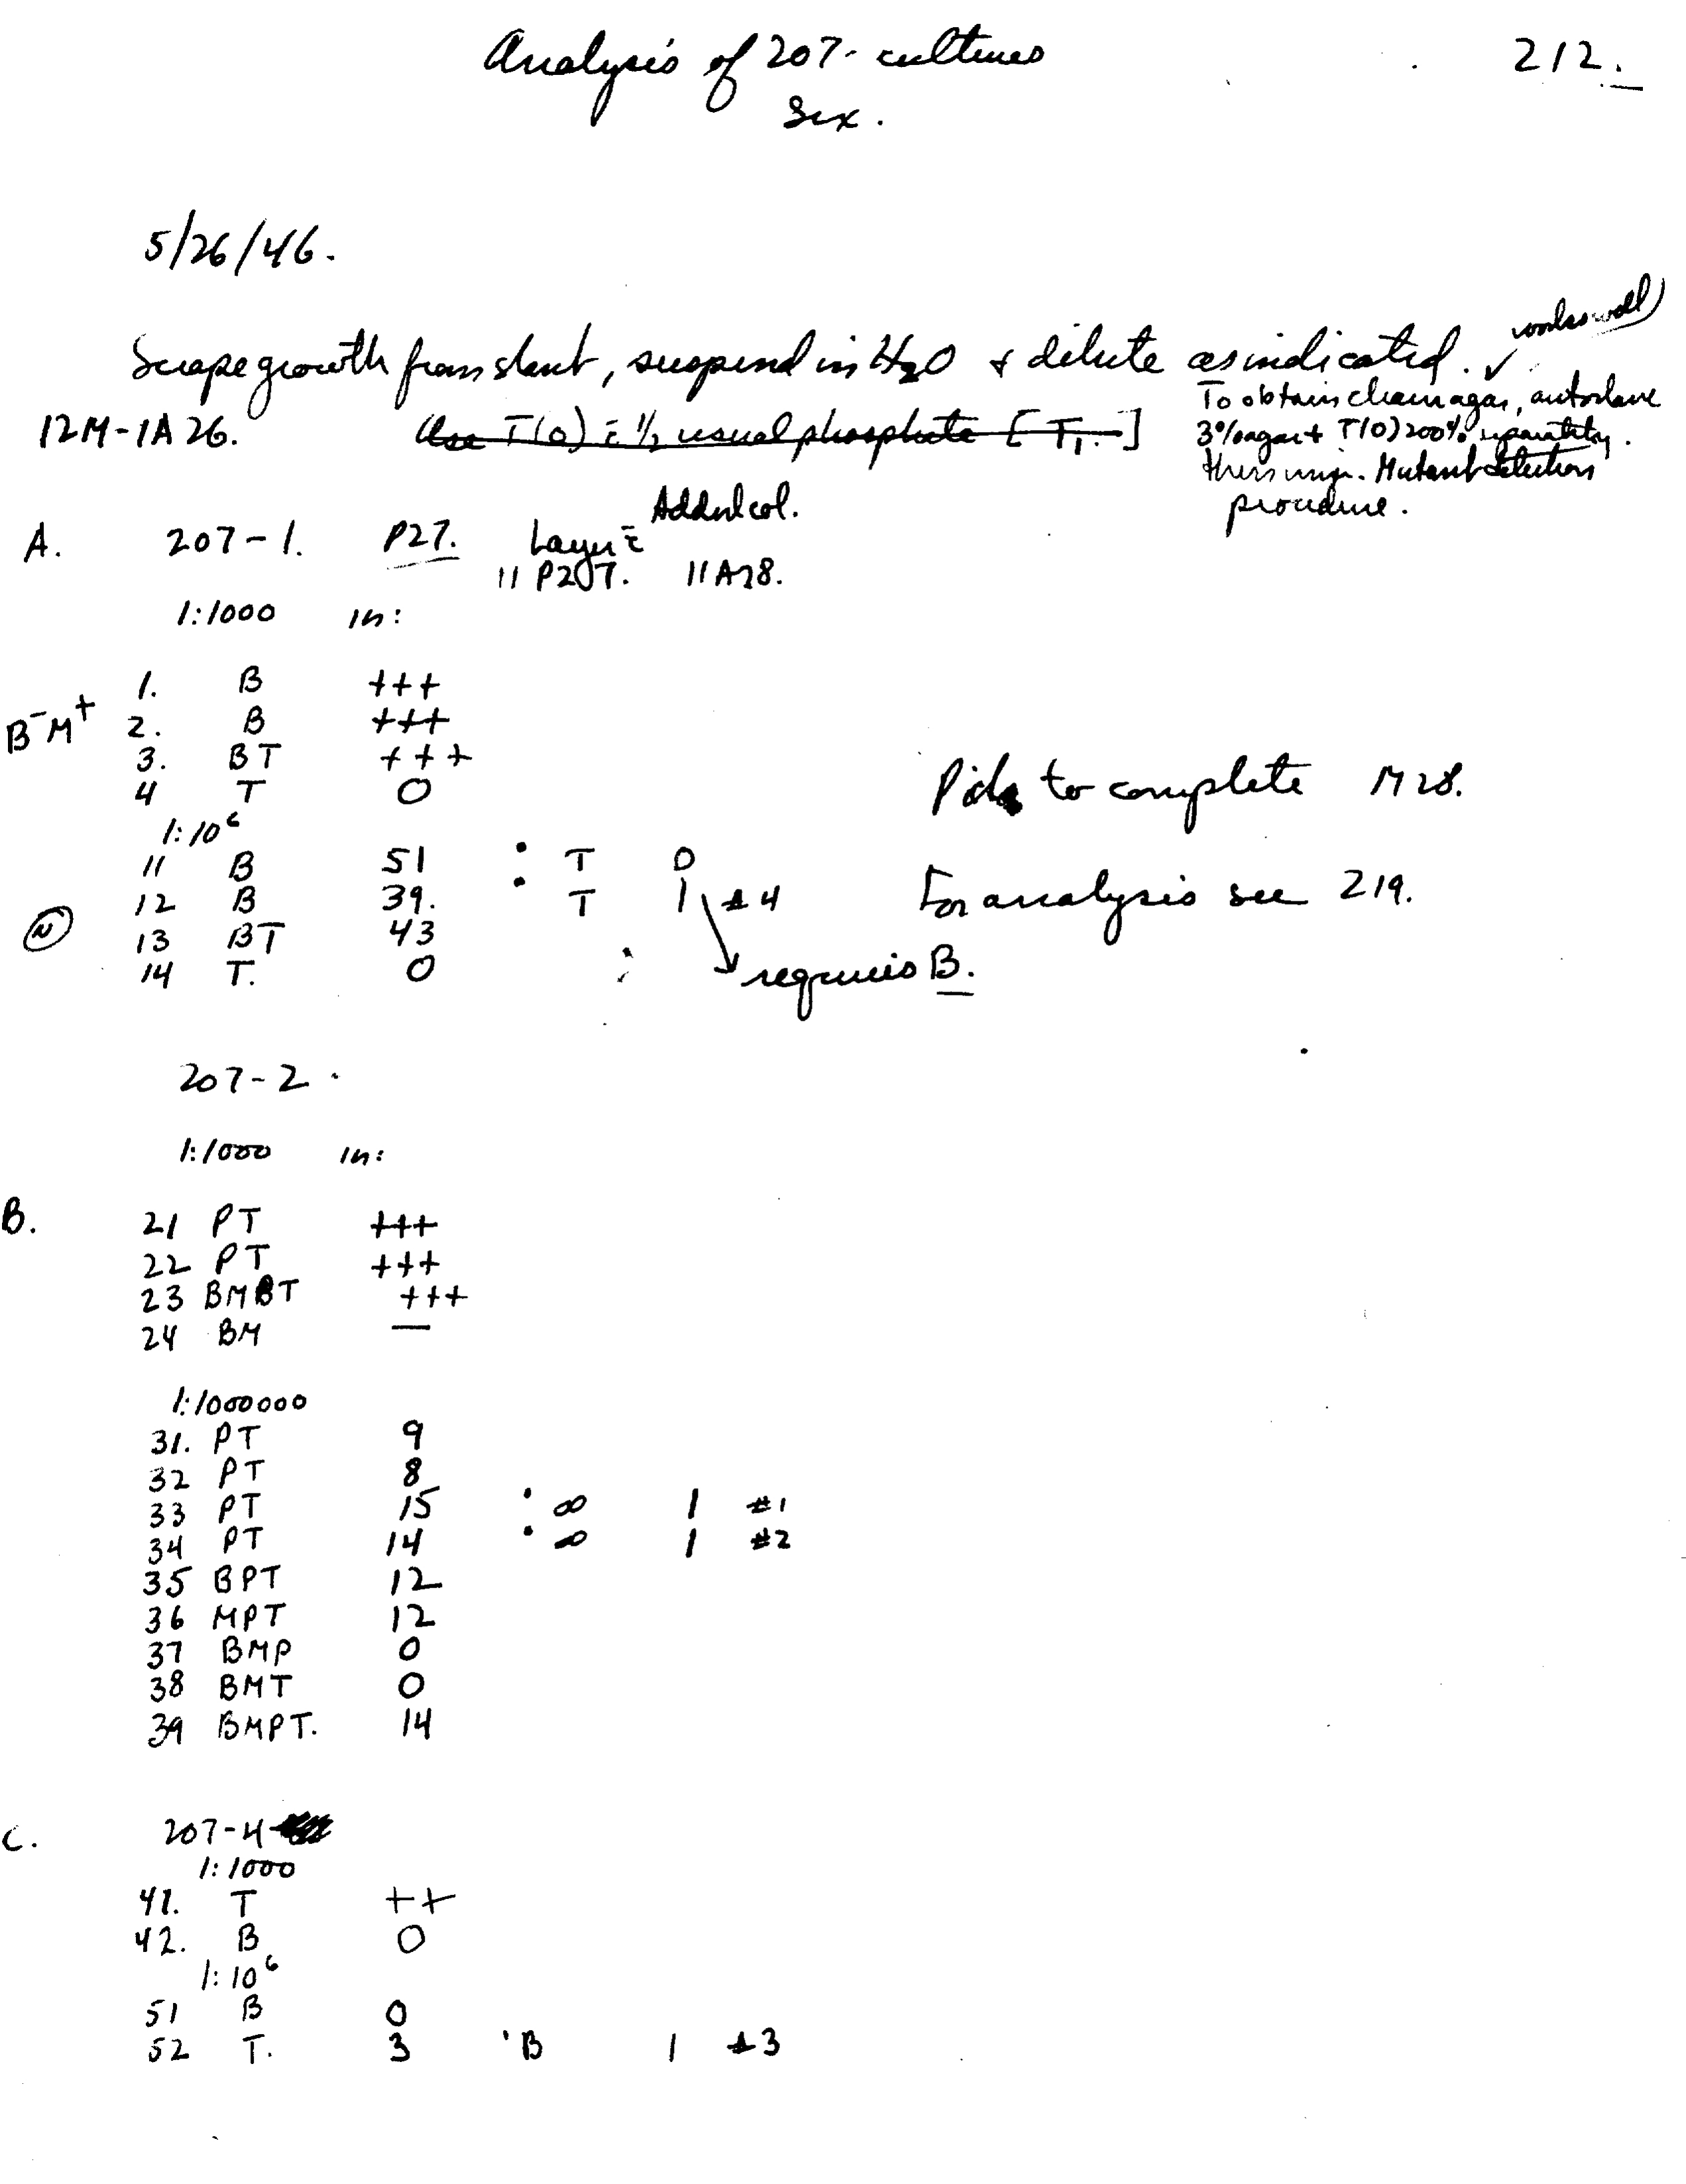 Analysis of 207- cultures 212.
Sex.
5/26/46.
Scrape growth from slant, suspend in H2O & dilute as indicated. ✓ works well)
12M-1A26. Use T(0) c̄ ½ usual phosphate [T1.]
To obtain clean agar, autoclave
3% agar + T(0) 200% separately.
then mix. Mutant detection
procedure.
A. 207-1. P27. Layer c̄ Addnl col.
11 P207. 11A28.
1:1000 in:
B-M+
1. B +++
2. B +++
3. BT +++
4 T 0
Pick to complete M28.
1:10^6
11 B 51 : T 0
12 B 39. T 1 #4
For analysis see 219.
(N) 13 BT 43
14 T. 0
requires B.
207-2.
1:1000 in:
B. 21 PT +++
22 PT +++
23 BMBT +++
24 BM —
1:1000000
31. PT 9
32 PT 8
33 PT 15 : ∞ 1 #1
34 PT 14 : ∞ 1 #2
35 BPT 12
36 MPT 12
37 BMP 0
38 BMT 0
39 BMPT. 14
C. 207-4
1:1000
41. T ++
42. B 0
1:10^6
51 B 0
52 T. 3 'B 1 #3